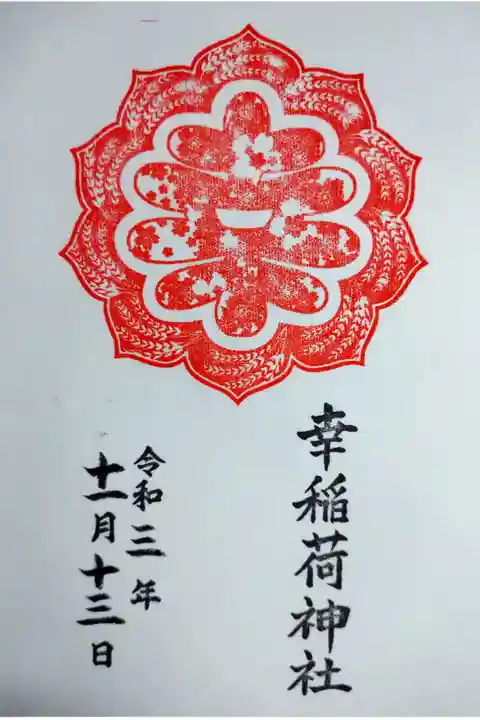 幸稲荷神社
令和三年
十一月十三日